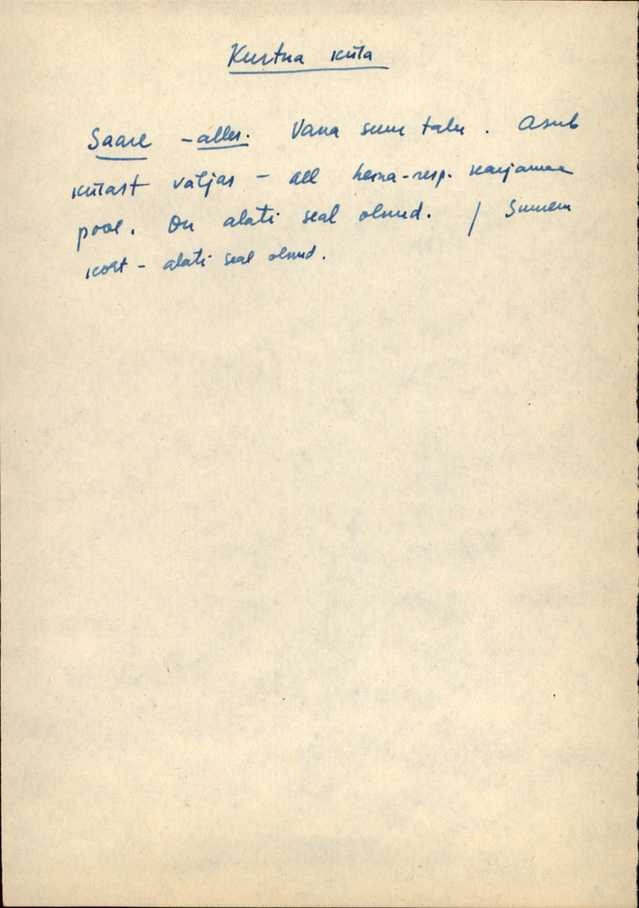 Kurtna küla
Saare - alles. Vana suur talu. Asub
külast väljas - all heina- resp. karjamaa
pool. On alati seal olnud. / Suurem
koht - alati seal olnud.